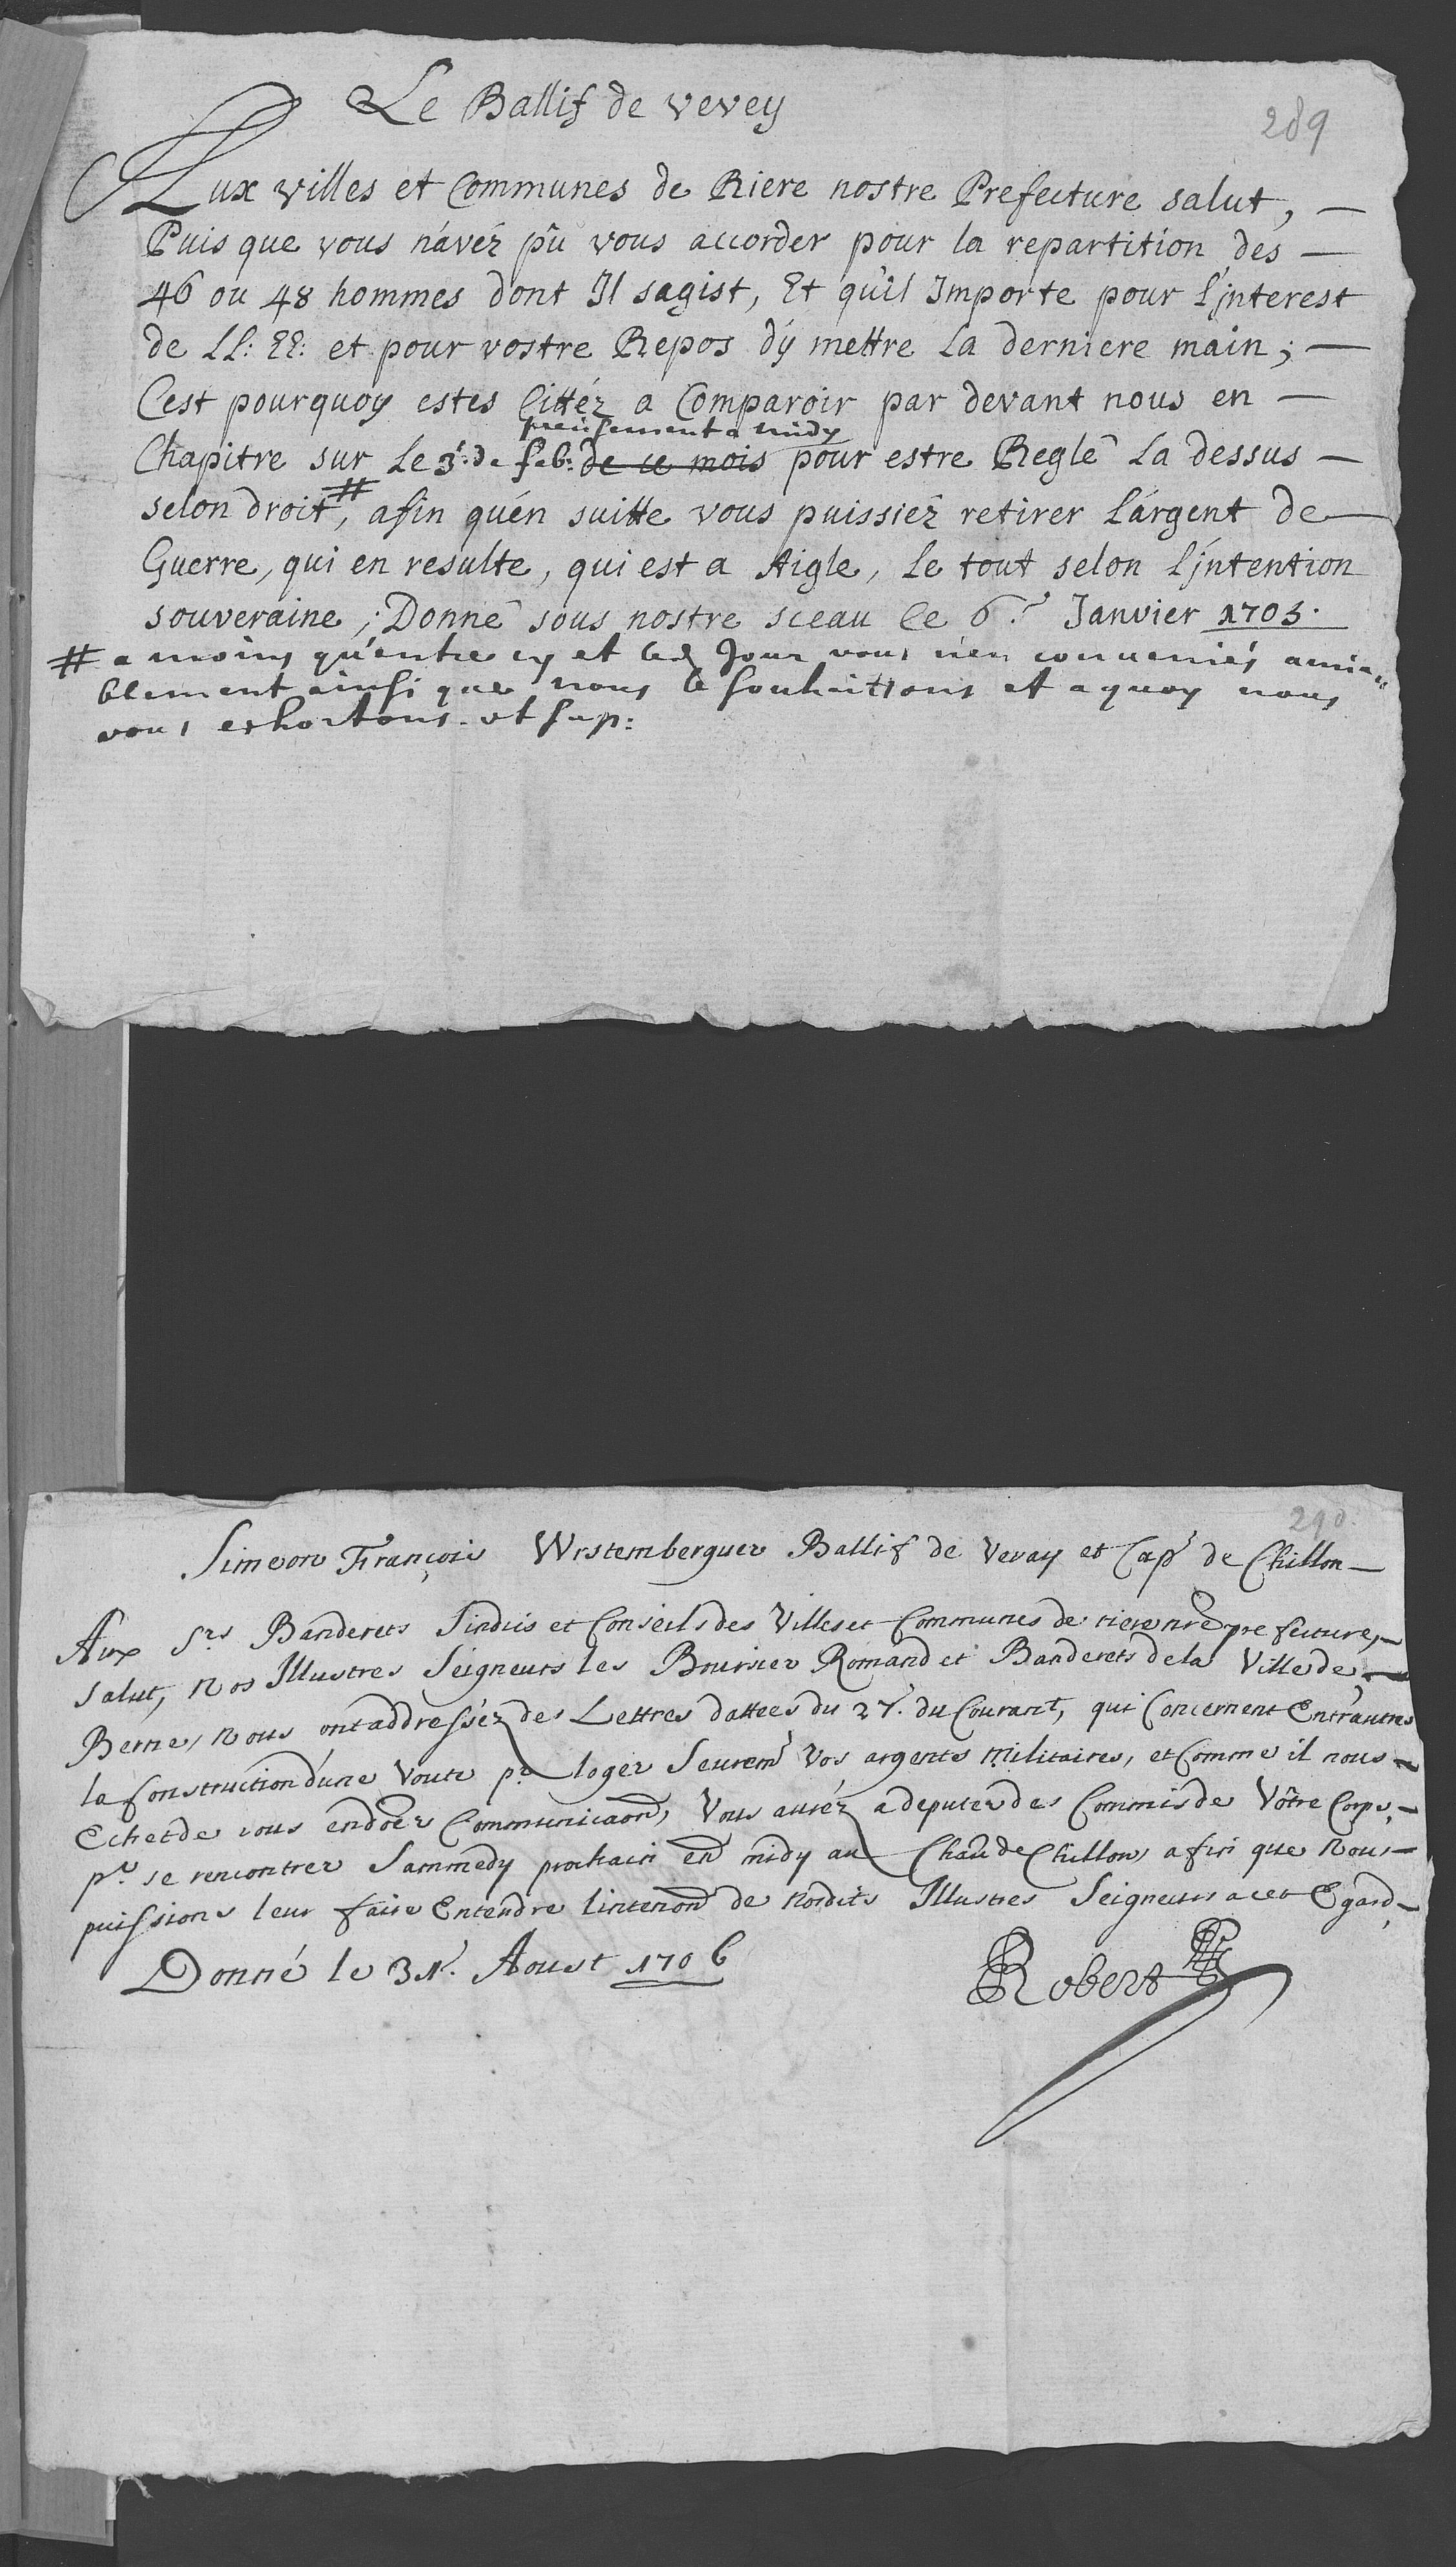 289
Le Ballif de vevey
Aux villes et Communes de Riere nostre Prefecture salut, —
Puis que vous n'avéz pû vous accorder pour la repartition des —
46 ou 48 hommes dont Il sagist, Et qu'il Importe pour l'jnterest
de LL: EE: et pour vostre Repos d'y mettre la derniere main; —
C'est pourquoy estes Cittéz a Comparoir par devant nous en —
precisement a midy
Chapitre sur le 3e. de feb: de ce mois pour estre Reglé la dessus —
selon droit #, afin qu'en suitte vous puissiez retirer l'argent de —
Guerre, qui en resulte, qui est a Aigle, le tout selon l'jntention
souveraine; Donné sous nostre sceau le 6.e Janvier 1703.
# a moins qu'entre cy et led Jour vous n'en conveniés amia„
blement ainsi que nous le souhaittons et a quoy nous
vous exhortons. ut sup:
290.
Simeon François Wrstemberguer Ballif de Vevay et Capne de Chillon —
Aux Srs Banderets Sindics et Conseils des Villes et Communes de riere nre prefecture, —
Salut, Nos Illustres Seigneurs les Boursier Romand et Banderets de la Ville de —
Berne, Nous ont addresséz des Lettres dattees du 27e. du Courant, qui Concernent Entr'autres
la Construction d'une Voute pr loger Seuremt Vos argents Militaires, et Comme il nous —
Echet de vous endoēr Communicaōn, Vous auréz a deputer des Commis de Vôtre Corps, —
pr. se rencontrer Sammedy prochain en midy au Chāu de Chillon, afin que Nous —
puissions leur faire Entendre lintenōn de Nosdits Illustres Seigneurs acet Egard, —
Donné le 31e. Aoust 1706
Robert